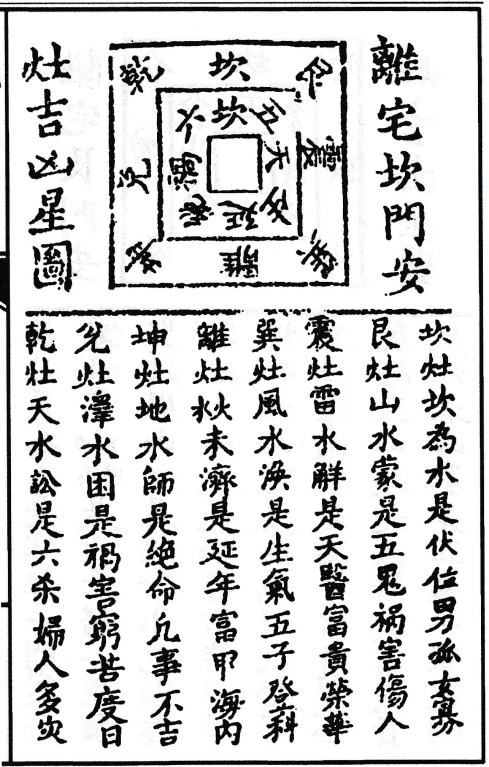 離宅坎門安
灶吉凶星圖
乾 坎 艮
震
巽
離
兑
六 坎 五
天
生
延
絕
禍
坎灶坎為水是伏位男孤女寡
艮灶山水蒙是五鬼祸害傷人
震灶雷水觧是天醫富貴榮華
巽灶風水渙是生氣五子登科
離灶火水未濟是延年富甲海内
坤灶地水師是絕命凢事不吉
兑灶澤水困是祸害窮苦度日
乾灶天水訟是六杀婦人多灾